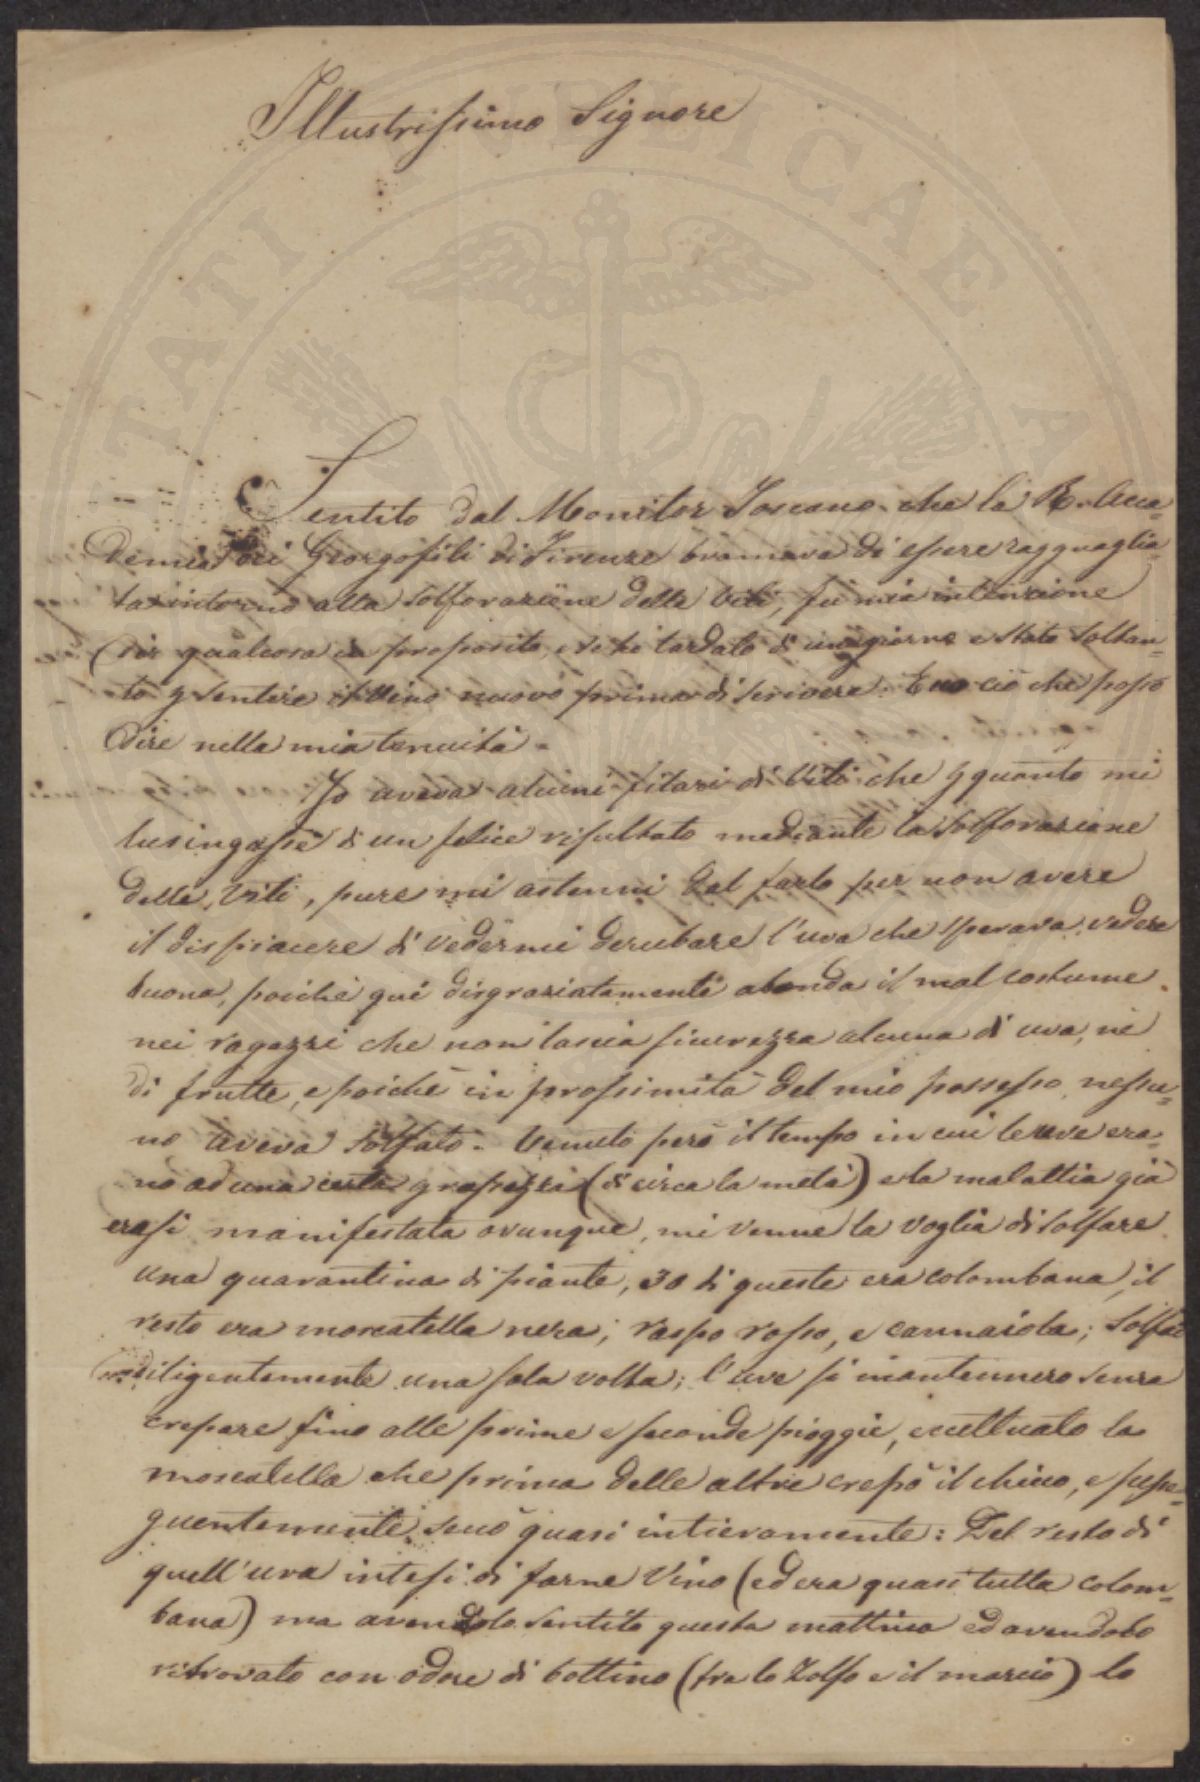 Illustrissimo Signore
Sentito dal Monitor Toscano che la R. Acca-
demia dei Georgofili di Firenze bramava di essere ragguaglia-
ta intorno alla solforazione delle Viti, fu mia intenzione
dir qualcosa in proposito, e se ho tardato di un giorno è stato soltan-
to p sentire il Vino nuovo prima di scrivere. Ecco ciò che posso
dire nella mia tenuità.
Io aveva alcuni filari di Viti che p quanto mi
lusingassi di un felice risultato mediante la Solforazione
delle Viti, pure mi astenni dal farlo per non avere
il dispiacere di vedermi derubare l'uva che sperava vedere
buona, poichè quì disgraziatamente abonda il mal costume
nei ragazzi che non lascia sicurezza alcuna di uva, nè
di frutte, e poichè in prossimità del mio possesso nessu-
no aveva Solfato. Venuto però il tempo in cui le uve era-
no ad una certa grossezza (di circa la metà) e la malattia già
erasi manifestata ovunque, mi venne la voglia di solfare
una quarantina di piante, 30 di queste era colombana, il
resto era moscatella nera; raspo rosso, e cannaiola; Solfai
diligentemente una sola volta; l'uve si mantennero senza
crepare fino alle prime e seconde pioggie, eccettuato la
moscatella che prima delle altre crepò il chicco, e susse-
guentemente seccò quasi intieramente: Del resto di
quell'uva intesi di farne Vino (ed era quasi tutta colom-
bana) ma avendolo sentito questa mattina ed avendolo
ritrovato con odore di bottino (fra lo Zolfo e il marcio) lo
TATI PUBLICAE A